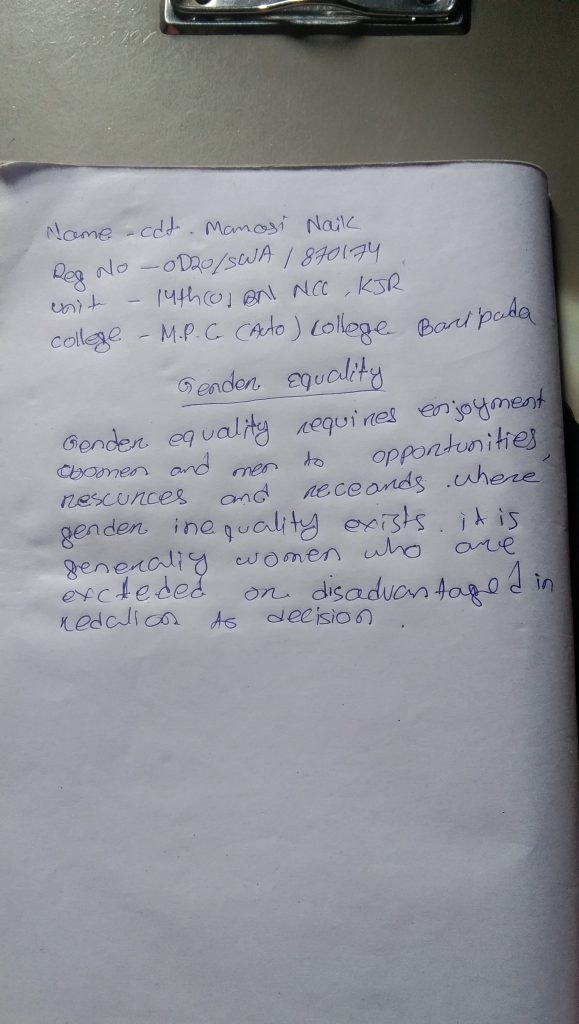 Name - cdt. Mamasi Naik
Reg No - OD20/SWA/870174
unit - 14th(O) BN NCC, KJR
college - M.P.C (Auto) College Baripada
Gender equality
Gender equality requires enjoyment
women and men to opportunities,
rescurces and receands. where
gender inequality exists. it is
generally women who are
excteded or disadvantaged in
redalion to decision.